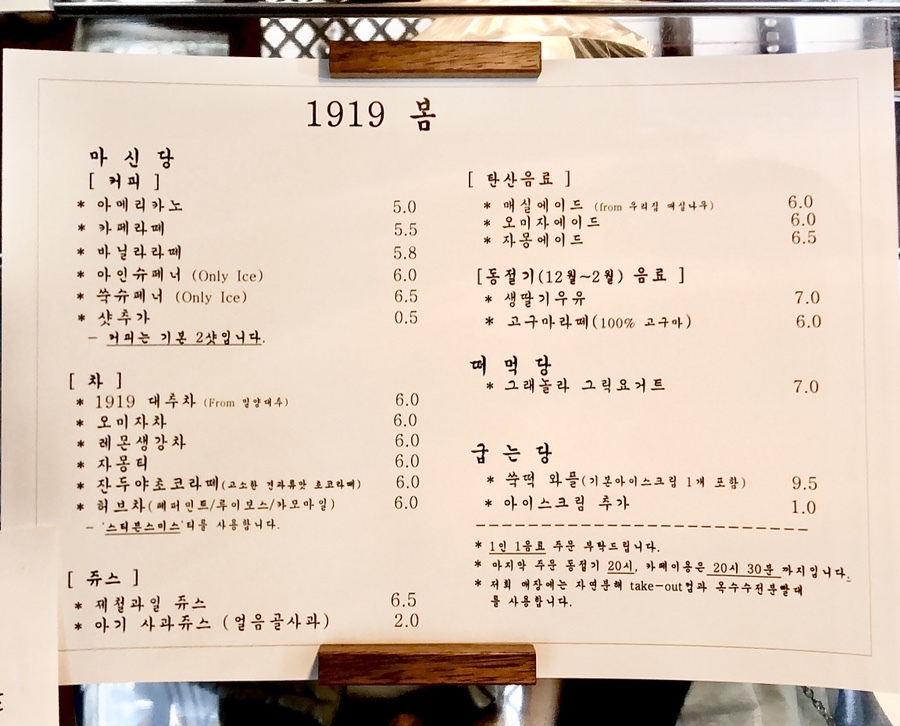 1919 봄
마 신 당
[ 커피 ]
* 아메리카노 5.0
* 카페라떼 5.5
* 바닐라라떼 5.8
* 아인슈페너 (Only Ice) 6.0
* 쑥슈페너 (Only Ice) 6.5
* 샷추가 0.5
- 커피는 기본 2샷입니다.
[ 차 ]
* 1919 대추차 (From 밀양대추) 6.0
* 오미자차 6.0
* 레몬생강차 6.0
* 자몽티 6.0
* 잔두야초코라떼(고소한 견과류맛 초코라떼) 6.0
* 허브차(페퍼민트/루이보스/카모마일) 6.0
- '스티븐스미스'티를 사용합니다.
[ 쥬스 ]
* 제철과일 쥬스 6.5
* 아기 사과쥬스 (얼음골사과) 2.0
[ 탄산음료 ]
* 매실에이드 (from 우리집 매실나무) 6.0
* 오미자에이드 6.0
* 자몽에이드 6.5
[동절기(12월~2월) 음료 ]
* 생딸기우유 7.0
* 고구마라떼(100% 고구마) 6.0
떠 먹 당
* 그래놀라 그릭요거트 7.0
굽 는 당
* 쑥떡 와플(기본아이스크림 1개 포함) 9.5
* 아이스크림 추가 1.0
* 1인 1음료 주문 부탁드립니다.
* 마지막 주문 동절기 20시, 카페이용은 20시 30분 까지입니다.
* 저희 매장에는 자연분해 take-out컵과 옥수수전분빨대
를 사용합니다.